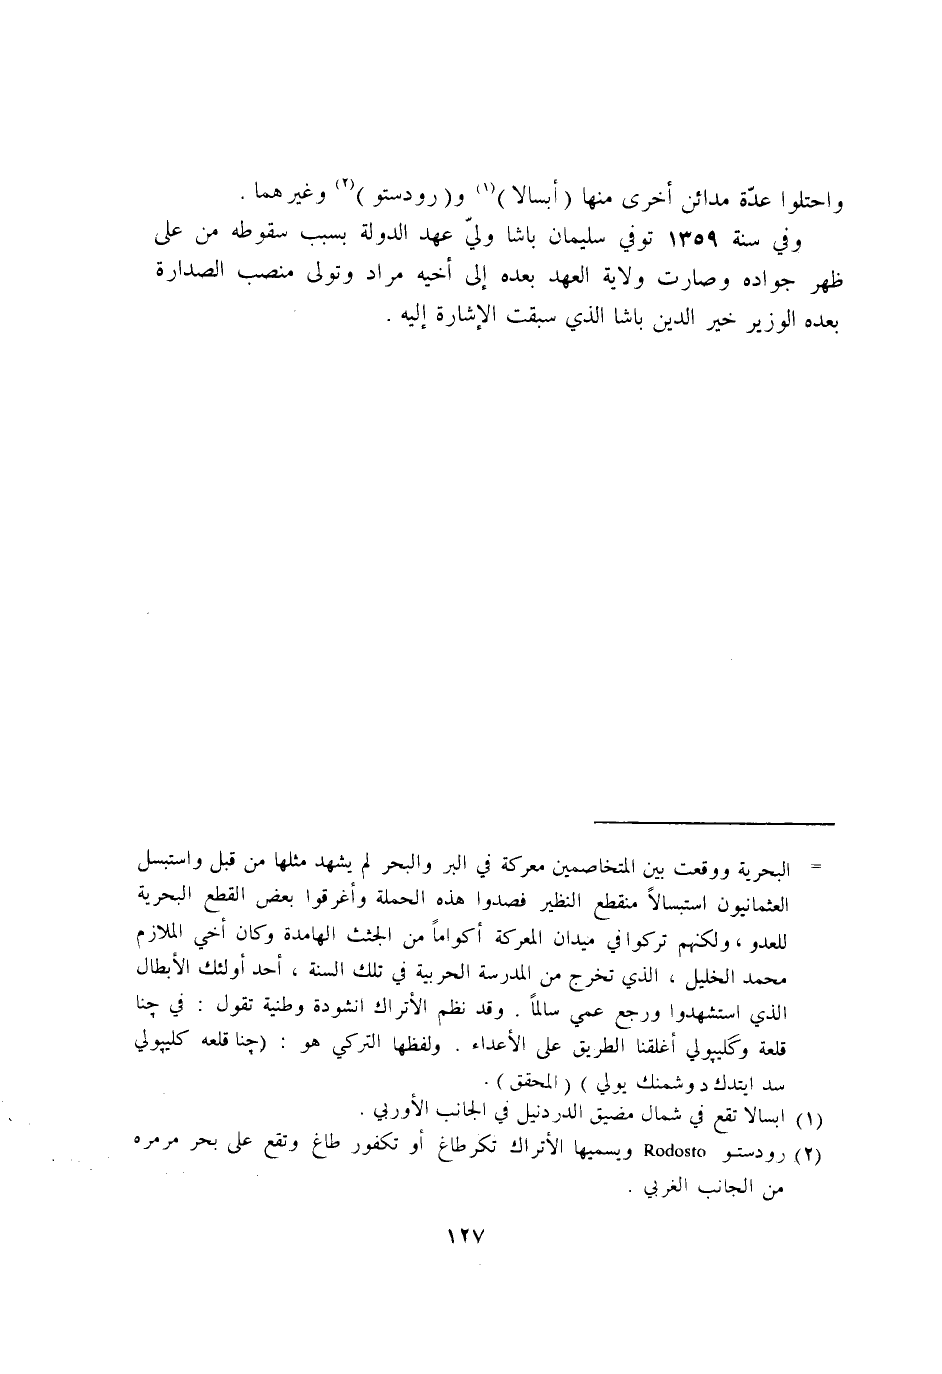 واحتلوا عدّة مدائن أخرى منها ( أبسالا )(١) و( رودستو )(٢) وغيرهما .
وفي سنة ١٣٥٩ توفي سليمان باشا وليّ عهد الدولة بسبب سقوطه من على
ظهر جواده وصارت ولاية العهد بعده إلى أخيه مراد وتولى منصب الصدارة
بعده الوزير خير الدين باشا الذي سبقت الإشارة إليه .
= البحرية ووقعت بين المتخاصمين معركة في البر والبحر لم يشهد مثلها من قبل واستبسل
العثمانيون استبسالاً منقطع النظير فصدوا هذه الحملة وأغرقوا بعض القطع البحرية
للعدو ، ولكنهم تركوا في ميدان المعركة أكواماً من الجثث الهامدة وكان أخي الملازم
محمد الخليل ، الذي تخرج من المدرسة الحربية في تلك السنة ، أحد أولئك الأبطال
الذي استشهدوا ورجع عمي سالماً . وقد نظم الأتراك انشودة وطنية تقول : في چنا
قلعة وگليپولي أغلقنا الطريق على الأعداء . ولفظها التركي هو : (چنا قلعه كليپولي
سد ايتدك دوشمنك يولي ) ( المحقق ) .
(١) ابسالا تقع في شمال مضيق الدردنيل في الجانب الأوربي .
(٢) رودستو Rodosto ويسميها الأتراك تكرطاغ أو تكفور طاغ وتقع على بحر مرمره
من الجانب الغربي .
١٢٧